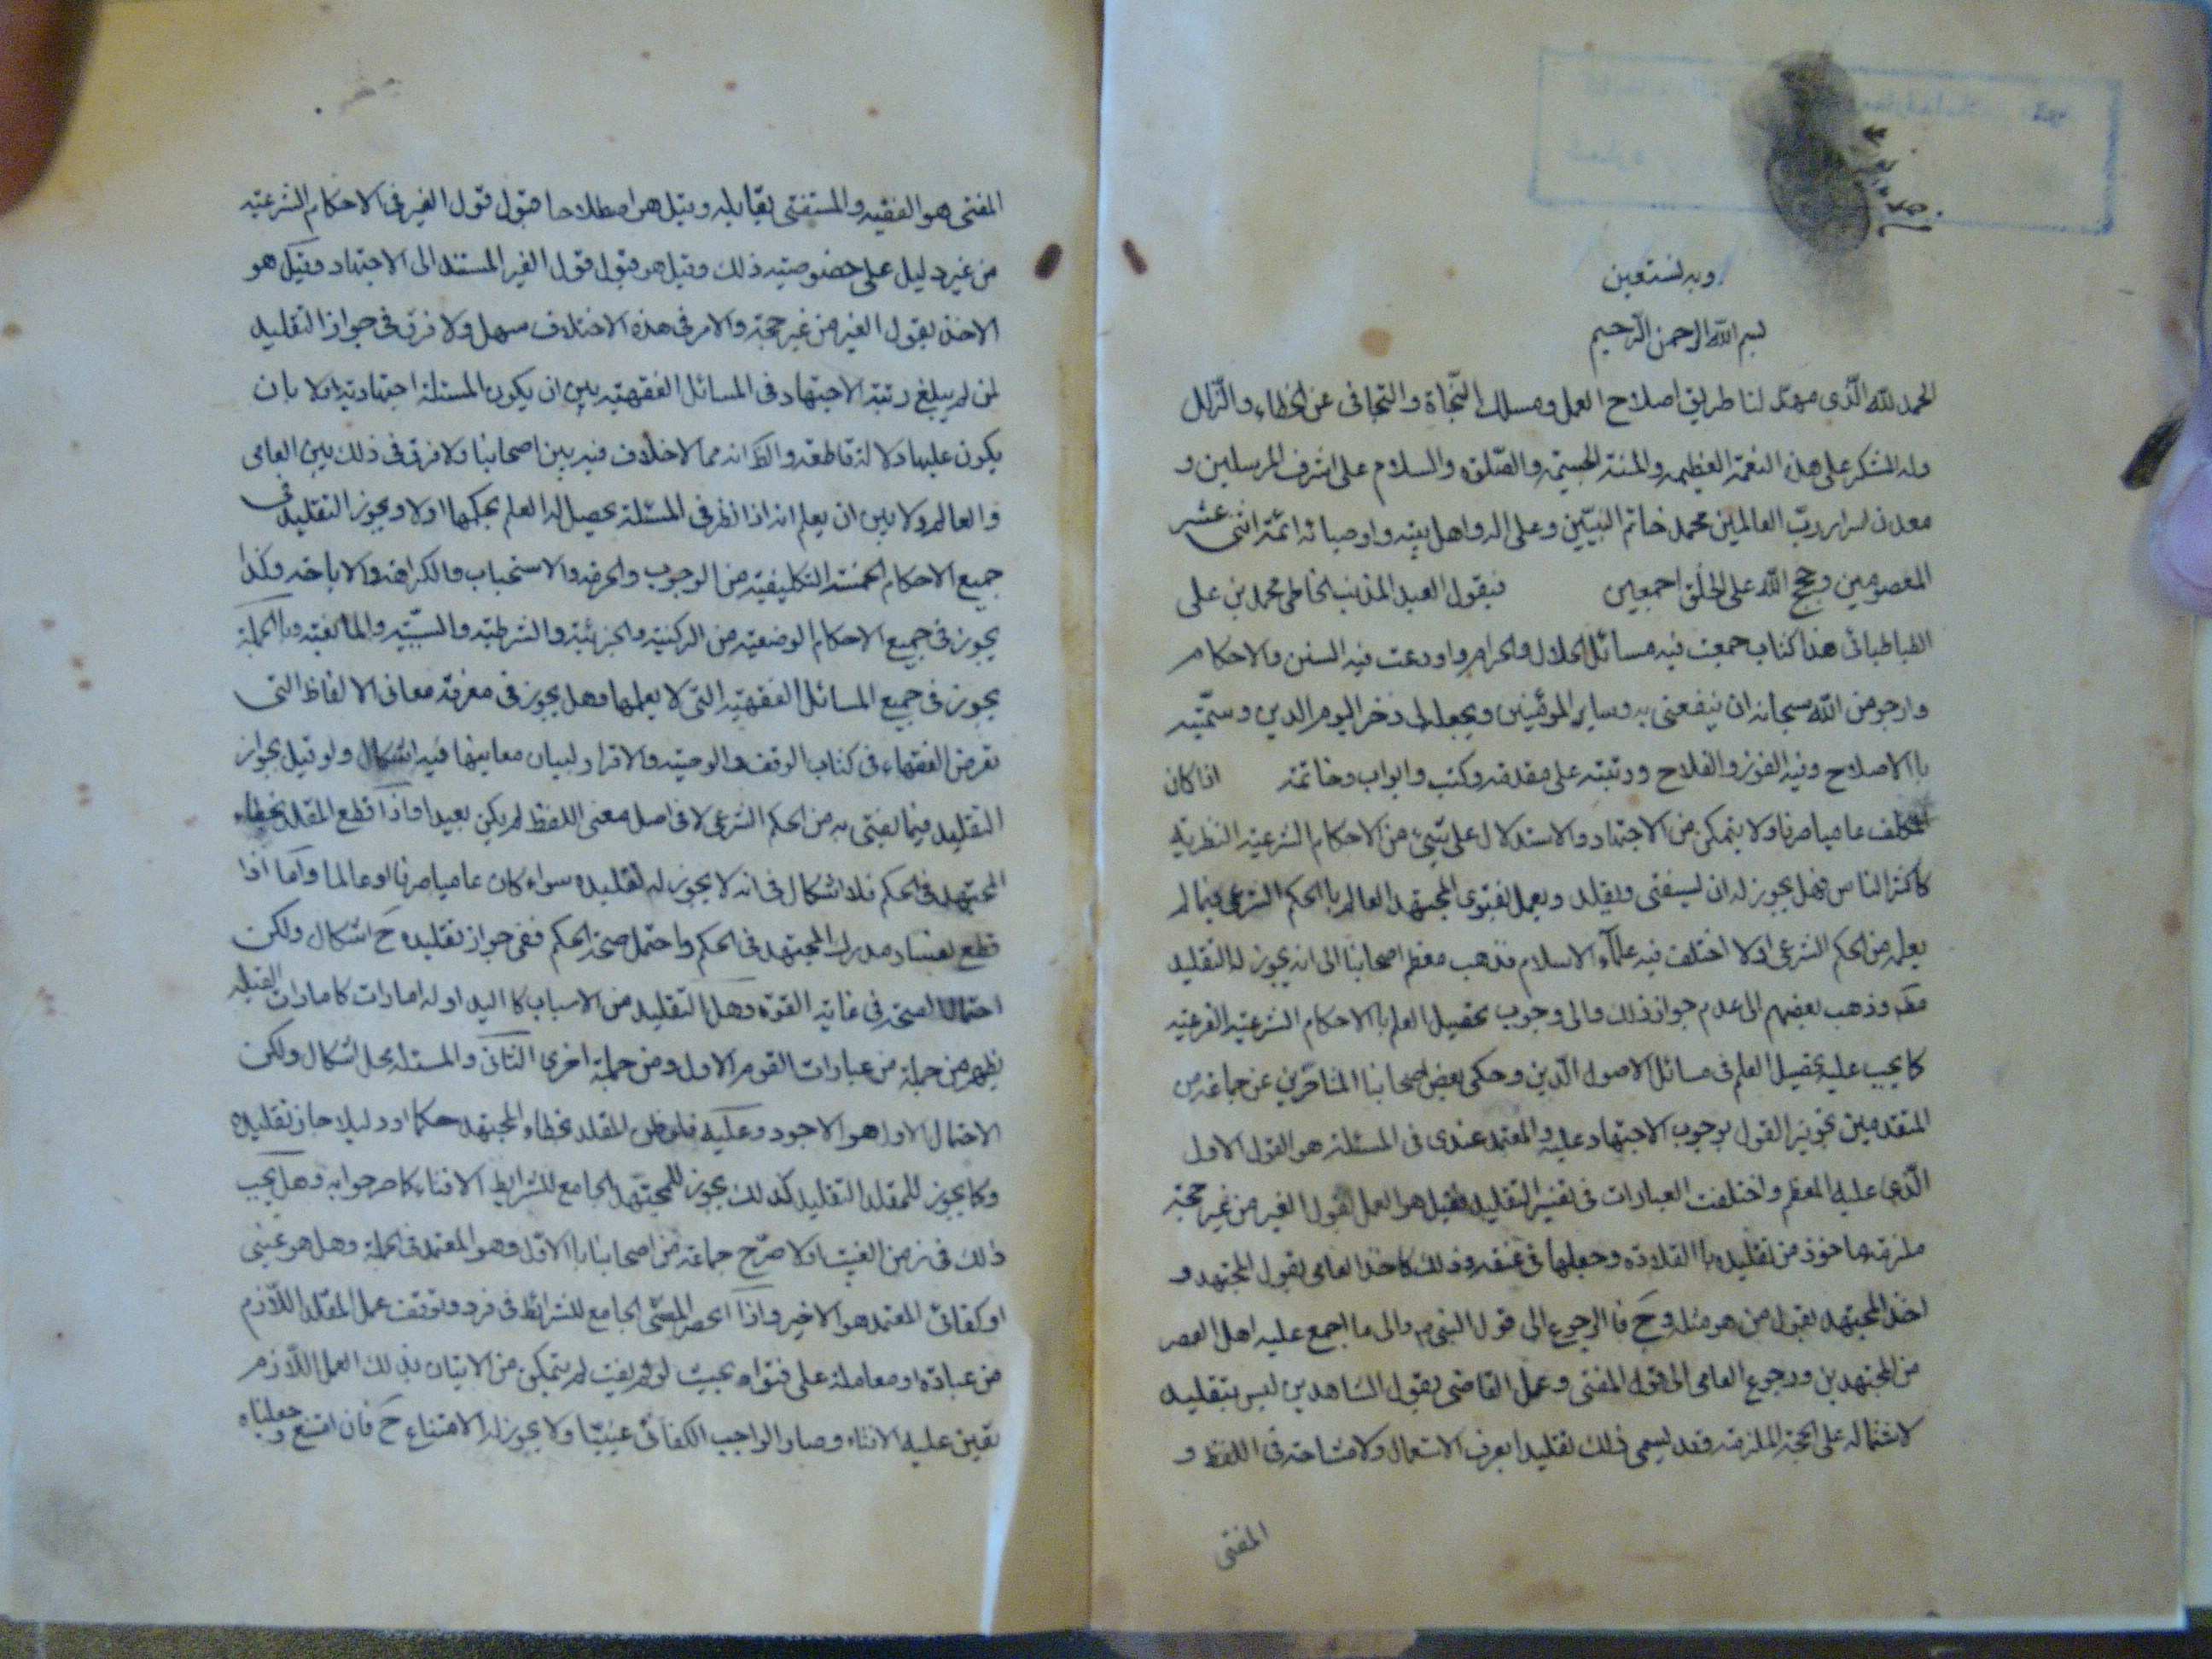 وبه نستعين
بسم الله الرحمن الرحيم
الحمد لله الّذى مهّد لنا طريق اصلاح العمل ومسلك النّجاة والتجافى عن الخطاء والزّلل
وله الشكر على هذه النعمة العظيمه والمنة الجسيمه والصّلوة والسلام على اشرف المرسلين و
معدن اسرار ربّ العالمين محمد خاتم النبيّين وعلى اله واهل بيته واوصيائه ائمّة اثنى عشر
المعصومين وحجج اللّه على الخلق اجمعين فيقول العبد المذنب الخاطى محمد بن على
الطباطبائى هذا كتاب جمعت فيه مسائل الحلال والحرام واودعت فيه السنن والاحكام
وارجو من اللّه سبحانه ان ينفعنى به وساير المؤمنين ويجعله لى ذخر اليوم الدين وسمّيته
باالاصلاح وفيه الفوز والفلاح ورتبته على مقدمه وكتب وابواب وخاتمة اذا كان
المكلف عاميا صرفا ولا يتمكن من الاجتهاد والاستدلال على شىء من الاحكام الشرعيّة النظريه
كاكثر الناس فهل يجوز له ان يستفتى ويقلد ويعمل بفتوى المجتهد العالم باالحكم الشرعى فيما لم
يعلمه من الحكم الشرعى اولا اختلف فيه علمآء الاسلام فذهب معظم اصحابنا الى انه يجوز له التقليد
مط وذهب بعضهم الى عدم جواز ذلك والى وجوب تحصيل العلم باالاحكام الشرعيّة الفرعيّه
كما يجب عليه تحصيل العلم فى مسائل الاصول الدّين وحكى بعض اصحابنا المتاخرين عن جماعة من
المتقدمين تجويز القول بوجوب الاجتهاد عليه والمعتمد عندى فى المسئلة هو القول الاول
الّذى عليه المعظم واختلفت العبارات فى تفسير التقليد فقيل هو العمل بقول الغير من غير حجة
ملزمة ماخوذ من تقليده باالقلادة وجعلها فى عنقه وذلك كاخذ العامى بقول المجتهد و
اخذ المجتهد بقول من هو مثله وح فالرجوع الى قول النبى ص والى ما اجمع عليه اهل العصر
من المجتهدين ورجوع العامى الى قول المفتى وعمل القاضى بقول الشاهدين ليس بتقليد
لاشتماله على الحجة الملزمة وقد يسمى ذلك تقليدا بعرف الاستعمال ولا مشاحة فى اللفظ و
المفتى
المفتى هو الفقيه والمستفتى يقابله وقيل هو اصطلاحا قبول قول الغير فى الاحكام الشرعيّه
من غير دليل على خصوصيته ذلك وقيل هو قبول قول الغير المستند الى الاجتهاد وقيل هو
الاخذ بقول الغير من غير حجة والامر فى هذه الاختلاف سهل ولا فرق فى جواز التقليد
لمن لم يبلغ رتبة الاجتهاد فى المسائل الفقهيّه بين ان يكون المسئلة اجتهادية اولا بان
يكون عليها دلالة قاطعة والظ انه مما لا خلاف فيه بين اصحابنا ولا فرق فى ذلك بين العامى
والعالم ولا بين ان يعلم انه اذا نظر فى المسئلة يحصل له العلم بحكمها اولا ويجوز التقليد فى
جميع الاحكام الخمسة التكليفيّه من الوجوب والحرمة والاستحباب والكراهة والاباحه وكذا
يجوز فى جميع الاحكام الوضعيّه من الركنيّه والجزئيّة والشرطيّه والسببيّه والمانعيّه وباالجملة
يجوز فى جميع المسائل الفقهيّه التى لا يعلمها وهل يجوز فى معرفة معانى الالفاظ التى
تعرض الفقهاء فى كتاب الوقف والوصيّه والاقرار لبيان معاينها فيه اشكال ولو قيل بجواز
التقليد فيما يفتى به من الحكم الشرعى لا فى اصل معنى اللفظ لم يكن بعيدا واذا قطع المقلد بخطاء
المجتهد فى الحكم فلا اشكال فى انه لا يجوز له تقليده سواء كان عاميا صرفا او عالما واما اذا
قطع بفساد مدرك المجتهد فى الحكم واحتمل صحة الحكم ففى جواز تقليده ح اشكال ولكن
احتمال الصحة فى غاية القوة وهل التقليد من الاسباب كااليد اوله امارات كامارات القبله
يظهر من جملة من عبارات القوم الاول ومن جملة اخرى الثانى والمسئله محل اشكال ولكن
الاحتمال الاول هو الاجود وعليه فلو ظن المقلد بخطاء المجتهد حكما او دليلا جاز تقليده
وكما يجوز للمقلد التقليد كذلك يجوز للمجتهد الجامع للشرايط الافتاء كما صرحوا به وهل يجب
ذلك فى زمن الغيبة اولا صرّح جماعة من اصحابنا باالاوّل وهو المعتمد فى الجملة وهل هو عينى
او كفائى المعتمد هو الاخير واذا انحصر المفتى الجامع للشرائط فى فرد وتوقف عمل المقلد اللّازم
من عبادة او معاملة على فتواه بحيث لو لم يفت لم يتمكن من الاتيان بذلك العمل اللّازم
تعين عليه الافتاء وصار الواجب الكفائى عينيّا ولا يجوز له الامتناع ح فان امتنع وجعلناه